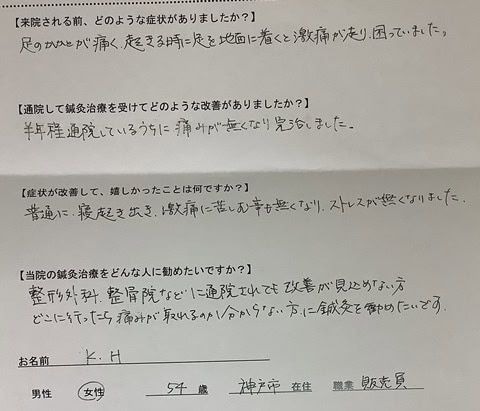 【来院される前、どのような症状がありましたか？】
足のかかとが痛く、起きる時に足を地面に着くと激痛が走り、困っていました。
【通院して鍼灸治療を受けてどのような改善がありましたか？】
半年程通院しているうちに痛みが無くなり完治しました。
【症状が改善して、嬉しかったことは何ですか？】
普通に、寝起き出き、激痛に苦しむ事も無くなり、ストレスが無くなりました。
【当院の鍼灸治療をどんな人に勧めたいですか？】
整形外科、整骨院などに通院されても改善が見込めない方
どこに行ったら痛みが取れるのか分からない方、に鍼灸を勧めたいです。
お名前 K.H
男性 女性 54 歳 神戸市 在住 職業 販売員